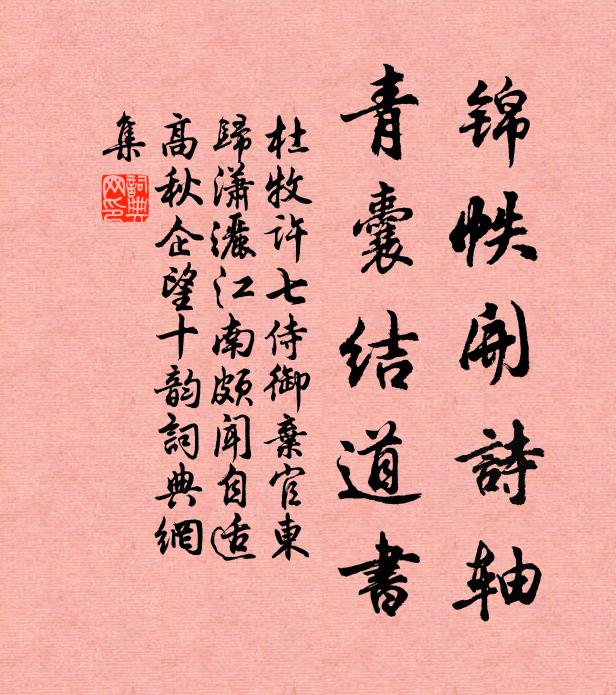 锦帙开詩轴
青囊结道書
杜牧許七侍御棄官東
歸瀟灑江南頗聞自适
高秋企望十韵詞典網
集
詞典
网印